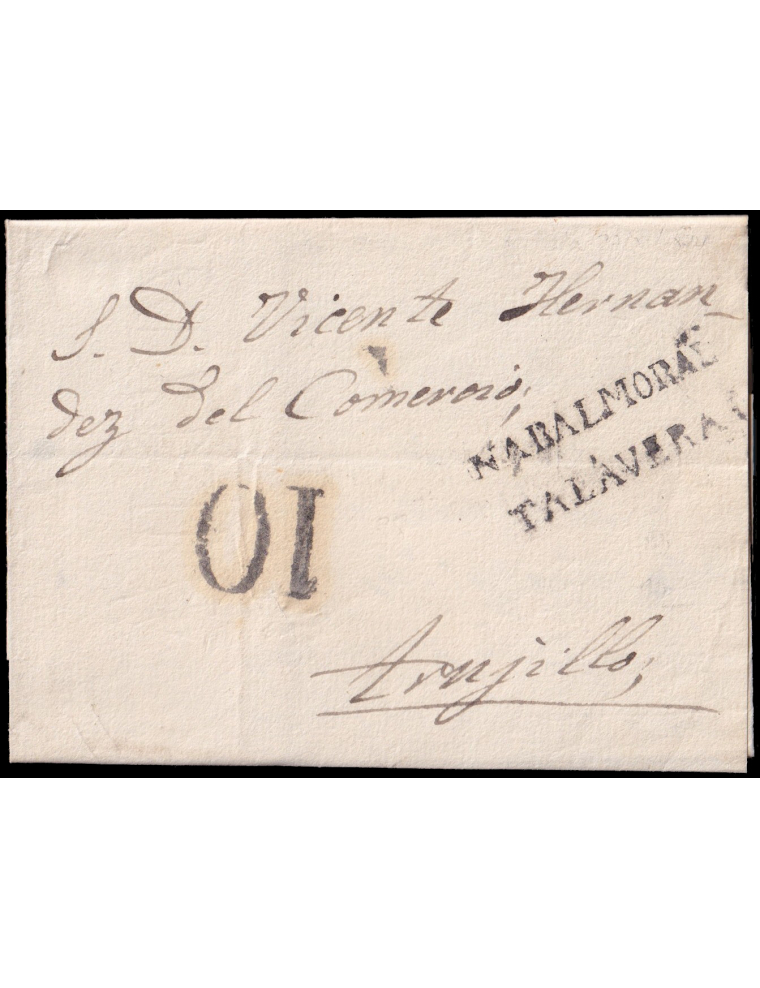 S. D. Vicente Hernan-
dez del Comercio;
NABALMORAL
TALAVERA
10
trujillo;